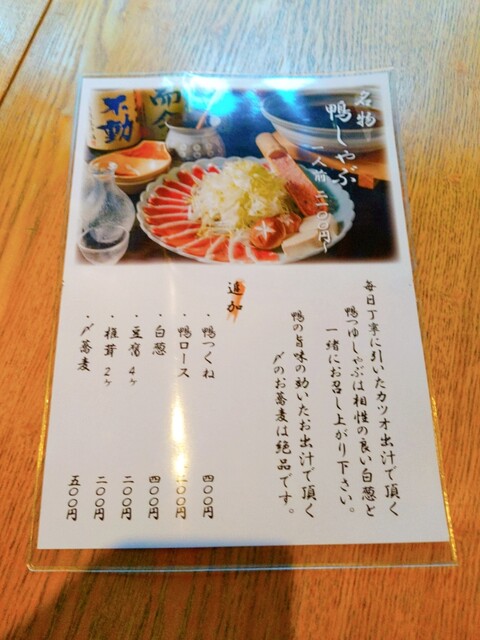 名物
鴨しゃぶ
一人前
毎日丁寧に引いたカツオ出汁で頂く
鴨つゆしゃぶは相性の良い白葱と
一緒にお召し上がり下さい。
鴨の旨味の効いたお出汁で頂く
〆のお蕎麦は絶品です。
追加
・鴨つくね 四〇〇円
・鴨ロース 〇〇円
・白葱 四〇〇円
・豆腐4ヶ 二〇〇円
・椎茸2ヶ 二〇〇円
・〆蕎麦 五〇〇円
不動